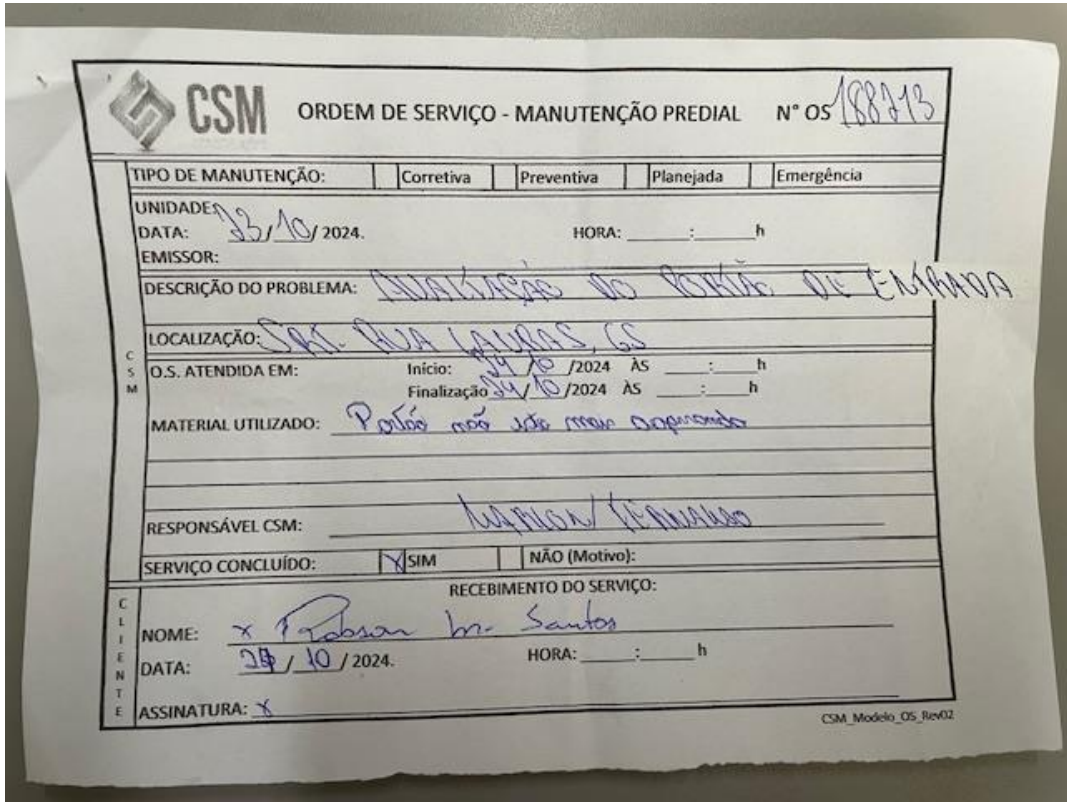 CSM ORDEM DE SERVIÇO - MANUTENÇÃO PREDIAL N° OS 188713
TIPO DE MANUTENÇÃO: Corretiva Preventiva Planejada Emergência
UNIDADE:
DATA: 23/10/2024. HORA: ____:____h
EMISSOR:
DESCRIÇÃO DO PROBLEMA: AVALIAÇÃO DO PORTÃO DE ENTRADA
LOCALIZAÇÃO: RUA LAURAS, 65
O.S. ATENDIDA EM: Início: 24/10/2024 ÀS ____:____h
Finalização 24/10/2024 ÀS ____:____h
MATERIAL UTILIZADO: Portão não está mais
RESPONSÁVEL CSM: MARLON/ FERNANDO
SERVIÇO CONCLUÍDO: X SIM NÃO (Motivo):
RECEBIMENTO DO SERVIÇO:
NOME: x Robson m. Santos
DATA: /10/2024. HORA: ____:____h
ASSINATURA: x
CSM
CLIENTE
CSM_Modelo_OS_Rev02